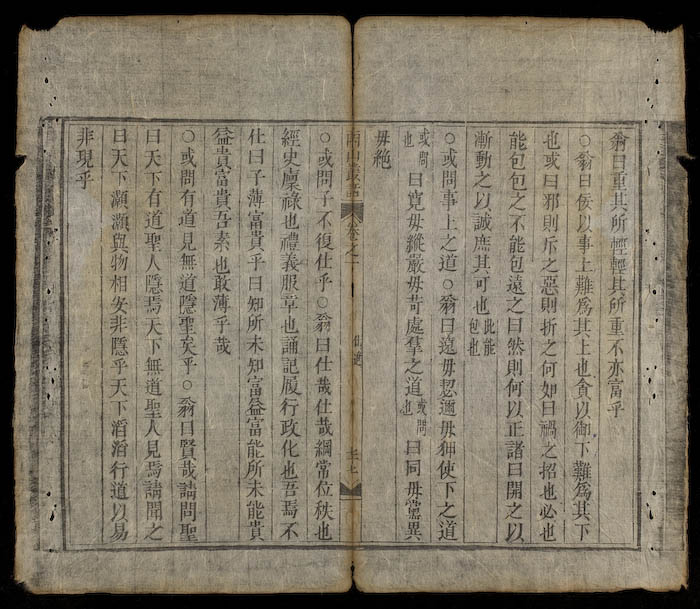 翁曰重其所輕輕其所重不亦富乎
○翁曰佞以事上難爲其上也貪以御下難爲其下
也或曰邪則斥之惡則折之何如曰禍之招也必也
能包包之不能包遠之曰然則何以正諸曰開之以
漸動之以誠庶其可也此能包也
○或問事上之道○翁曰遠毋恝邇毋狎使下之道
或問也曰寬毋縱嚴毋苛處羣之道或問也曰同毋黨異
毋絶
卷之
○或問子不復仕乎○翁曰仕哉仕哉綱常位秩也
經史廩祿也禮義服章也誦記履行政化也吾焉不
仕曰子薄富貴乎曰知所未知富益富能所未能貴
益貴富貴吾素也敢薄乎哉
○或問有道見無道隱聖矣乎○翁曰賢哉請問聖
曰天下有道聖人隱焉天下無道聖人見焉請聞之
曰天下灝灝與物相安非隱乎天下滔滔行道以易
非現乎